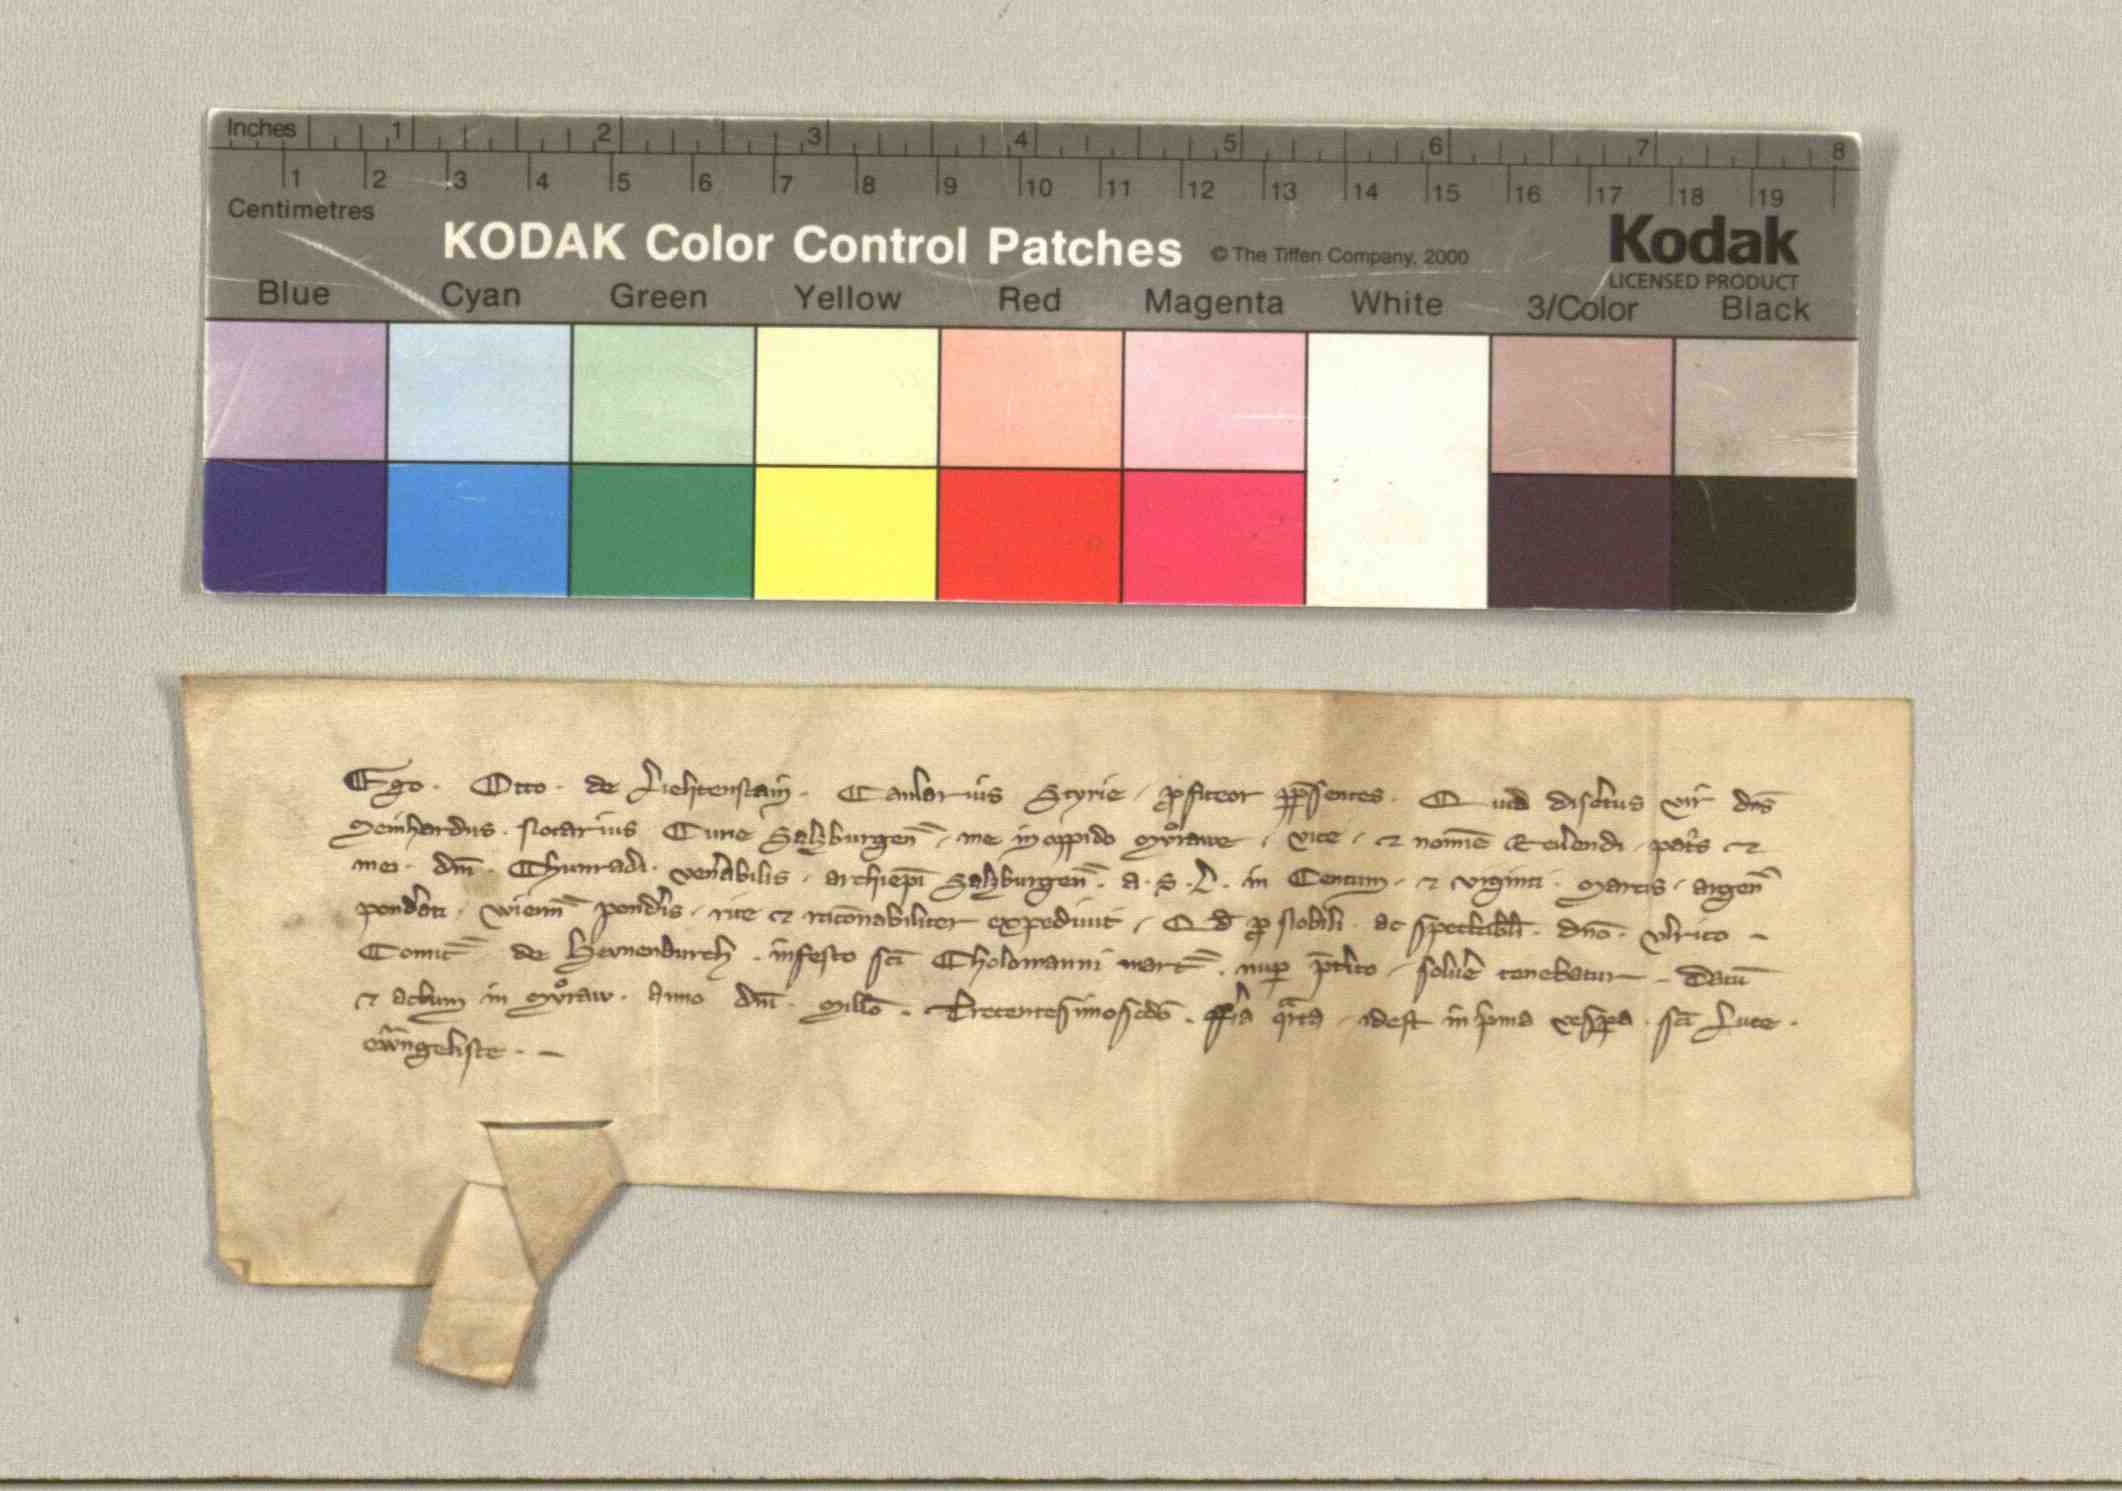 Inches 1 2 3 4 5 6 7 8
1 2 3 4 5 6 7 8 9 10 11 12 13 14 15 16 17 18 19
Centimetres
KODAK Color Control Patches © The Tiffen Company, 2000
Kodak
LICENSED PRODUCT
Blue Cyan Green Yellow Red Magenta White 3/Color Black
Ego · Otto · de Liehtenstain · Camarius Styrie · ꝓfiteor ꝑ p̄sentes · Quod discͤtus vir dn̄s
Meinhardus · Notarius Curie Salzburgen̄ · me in oppido Mvͦrawe · vice · ⁊ nomīe Reuͤendi · pat̄s ⁊
mei · dn̄i · Chunradi · ven̄abilis · archiep̄i Salzburgen̄ · a · S · L · in Centum · ⁊ viginti · Marcis · argen̄
pondͤati · Wienn̄ pondͤis · rite ⁊ rac̄onabiliter expediuit · Qd̄ ꝓ Nobili · ac spectabil̄i · dn̄o · Vlrico –
Comit̄ de Hevnenburch · in festo sc̄i Cholomanni mart̄ · nuꝑ p̄t̄ito · soluͤe tenebatur – Datū
⁊ actum in Mvͦraw · Anno dn̄i · Mill̄o · Trecentesimo sc̄do · fr̄ia qᵃrta · idest in pͥma vesꝑa · sc̄i Luce ·
ewᵃngeliste · –